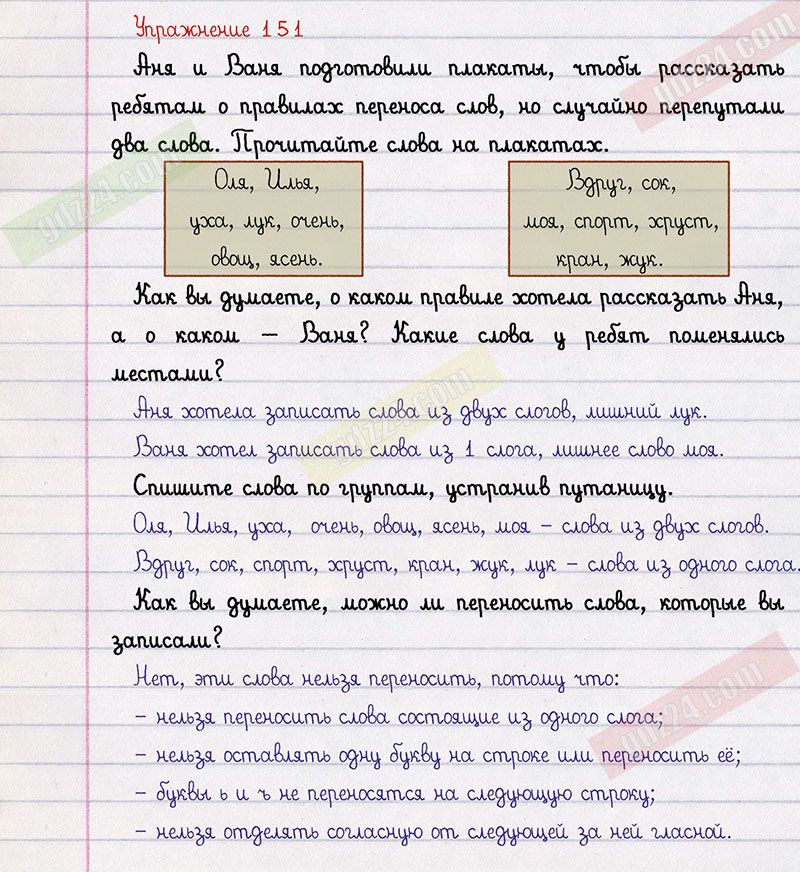 Упражнение 151
Аня и Ваня подготовили плакаты, чтобы рассказать
ребятам о правилах переноса слов, но случайно перепутали
два слова. Прочитайте слова на плакатах.
Оля, Илья,
уха, лук, очень,
овощ, ясень.
Вдруг, сок,
моя, спорт, хруст,
кран, жук.
Как вы думаете, о каком правиле хотела рассказать Аня,
а о каком – Ваня? Какие слова у ребят поменялись
местами?
Аня хотела записать слова из двух слогов, лишний лук.
Ваня хотел записать слова из 1 слога, лишнее слово моя.
Спишите слова по группам, устранив путаницу.
Оля, Илья, уха, очень, овощ, ясень, моя – слова из двух слогов.
Вдруг, сок, спорт, хруст, кран, жук, лук – слова из одного слога.
Как вы думаете, можно ли переносить слова, которые вы
записали?
Нет, эти слова нельзя переносить, потому что:
– нельзя переносить слова состоящие из одного слога;
– нельзя оставлять одну букву на строке или переносить её;
– буквы ь и ъ не переносятся на следующую строку;
– нельзя отделять согласную от следующей за ней гласной.
gdz24.com
gdz24.com
gdz24.com
gdz24.com